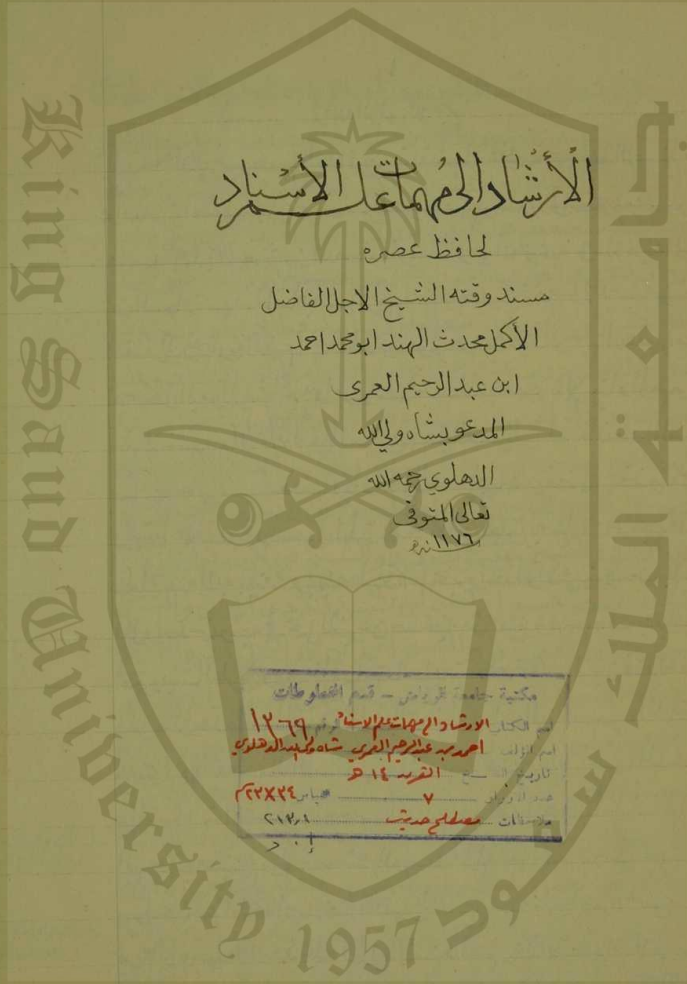 الأرشاد الى مهمات علم الأسناد
لحافظ عصره
مسند وقته الشيخ الاجل الفاضل
الأكمل محدث الهند ابو محمد احمد
ابن عبد الرحيم العمرى
المدعو بشاه ولي الله
الدهلوي رحمه الله
تعالى المتوفى
سنة ١١٧٦ هـ
مكتبة جامعة الرياض - قسم المخطوطات
اسم الكتاب الارشاد الى مهمات علم الاسناد الرقم ١٣٦٩
اسم المؤلف احمد بن عبد الرحيم العمري شاه ولي الله الدهلوي
تاريخ النسخ القرن ١٤ هـ
عدد الاوراق ٧ مقياس ٢٤×٢٣ سم
ملاحظات مصطلح حديث
King Saud University 1957
جامعة الملك سعود